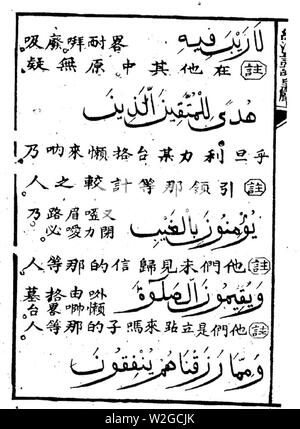 لَا رَيْبَ فِيهِ
畧耐哶廢吸
註 在他其中原無疑
هُدًى لِلْمُتَّقِينَ الَّذِينَ
乎旦利力其台格懶來吶乃
註 引領那等計較之人
يُؤْمِنُونَ بِالْغَيْبِ
又哑眉路乃
閉力愛必
註 他們未見歸信的那等人
وَيُقِيمُونَ الصَّلَوٰةَ
由格墓
懶畧台
註 他們是立站來嗎子的那等人
وَمِمَّا رَزَقْنَاهُمْ يُنْفِقُونَ